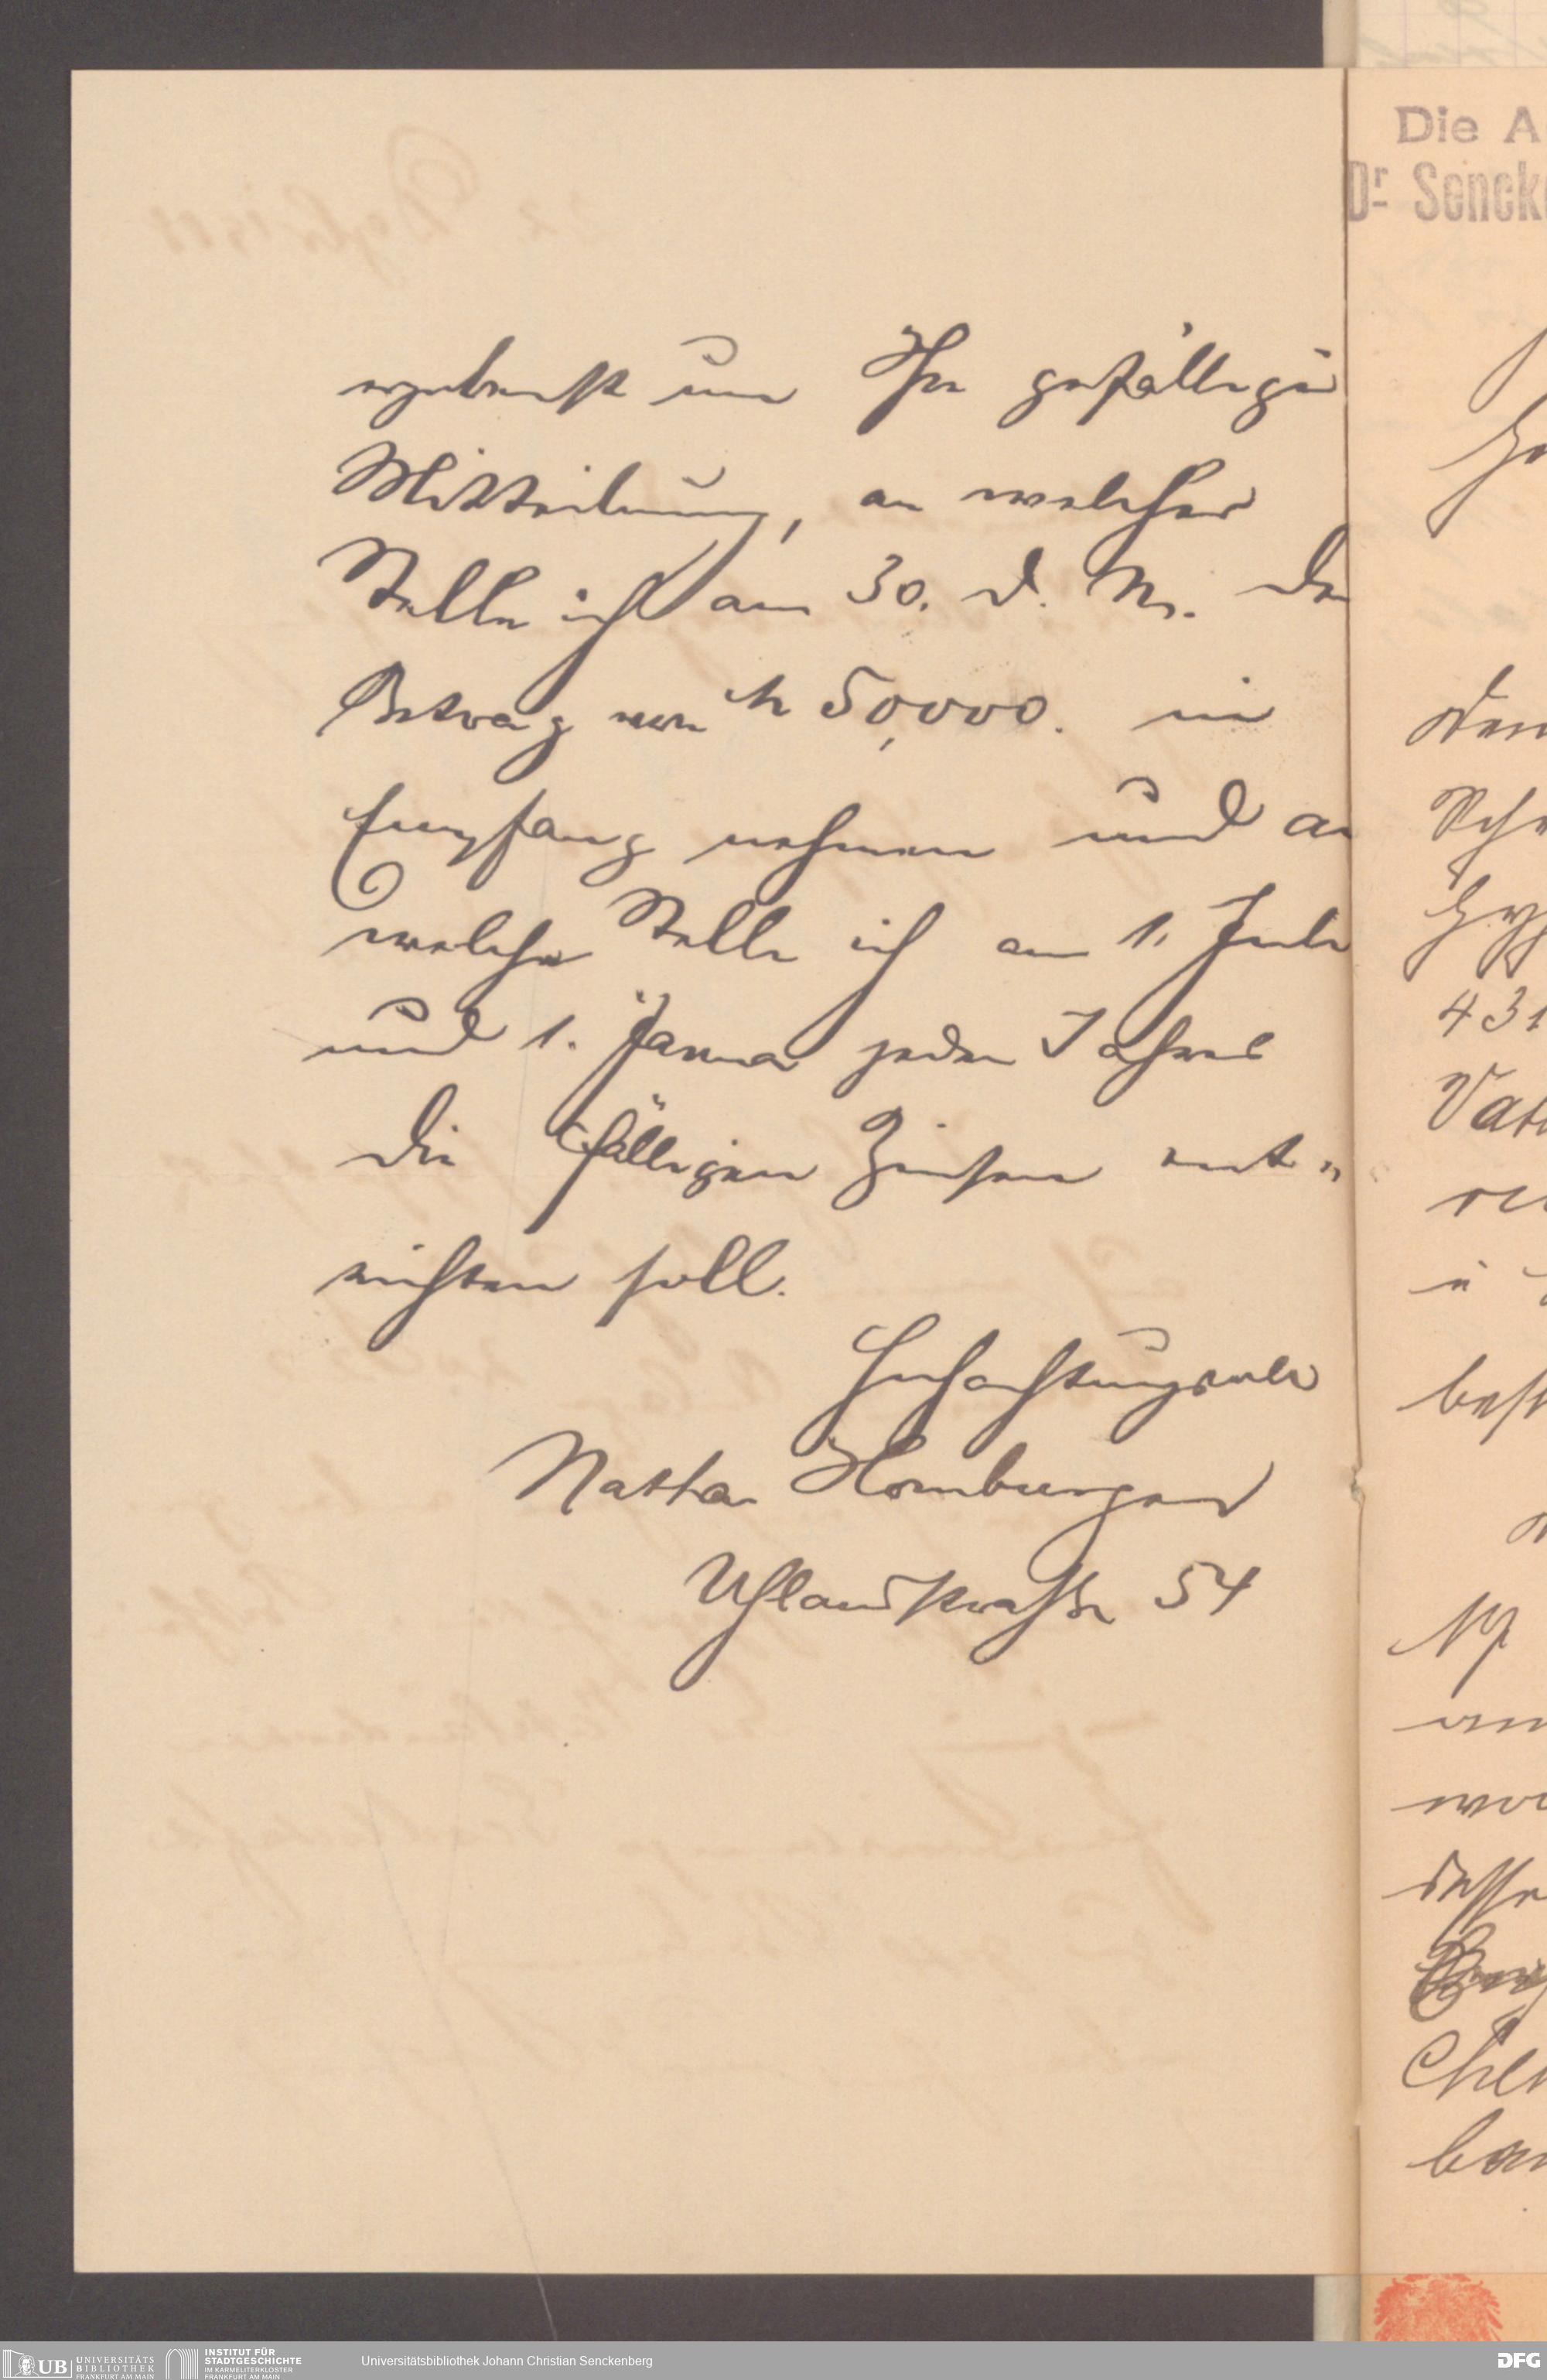 ergebenst um Ihre gefällige
Mitteilung, an welcher
Stelle ich am 30. d. M. den
Betrag von M 50,000. in
Empfang nehmen und an
welche Stelle ich am 1. Juli
und 1. Januar jeden Jahres
die fälligen Zinsen ent„
richten soll.
Hochachtungsvoll
Nathan Homburger
Uhlandstraße 54
Die A
Dr Sencke
den
431
Vat
best
UB UNIVERSITÄTS
BIBLIOTHEK
FRANKFURT AM MAIN
INSTITUT FÜR
STADTGESCHICHTE
IM KARMELITERKLOSTER
FRANKFURT AM MAIN
Universitätsbibliothek Johann Christian Senckenberg
DFG